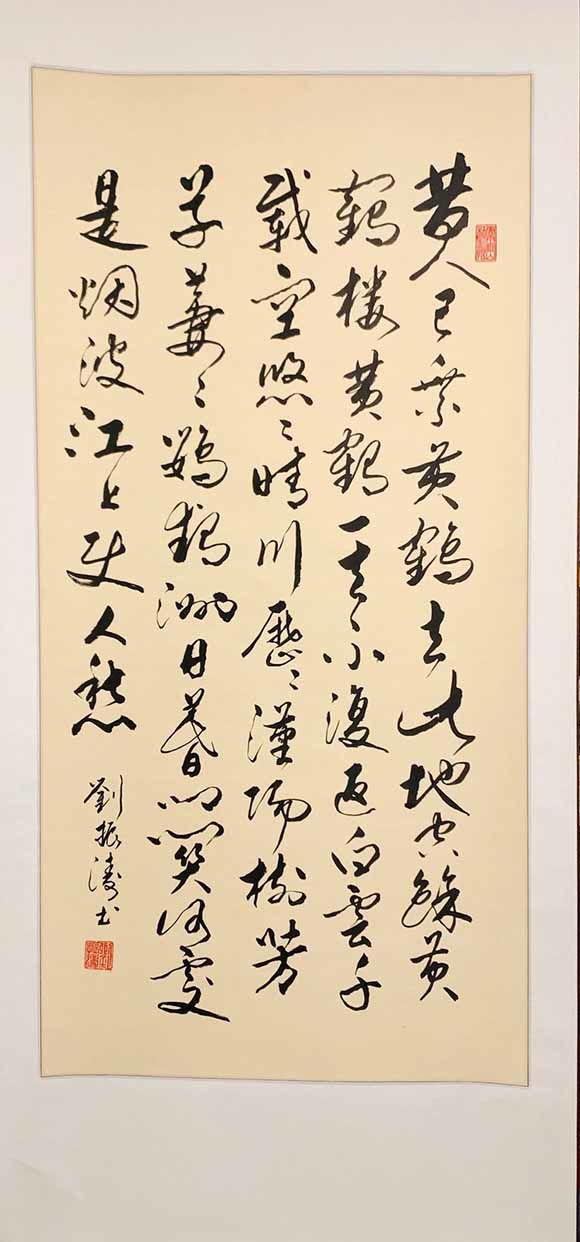 昔人已乘黄鶴去此地空餘黄
鶴楼黄鶴一去不復返白雲千
載空悠々晴川歷々漢陽樹芳
草萋々鸚鵡洲日暮鄉關何處
是烟波江上使人愁
劉振濤书